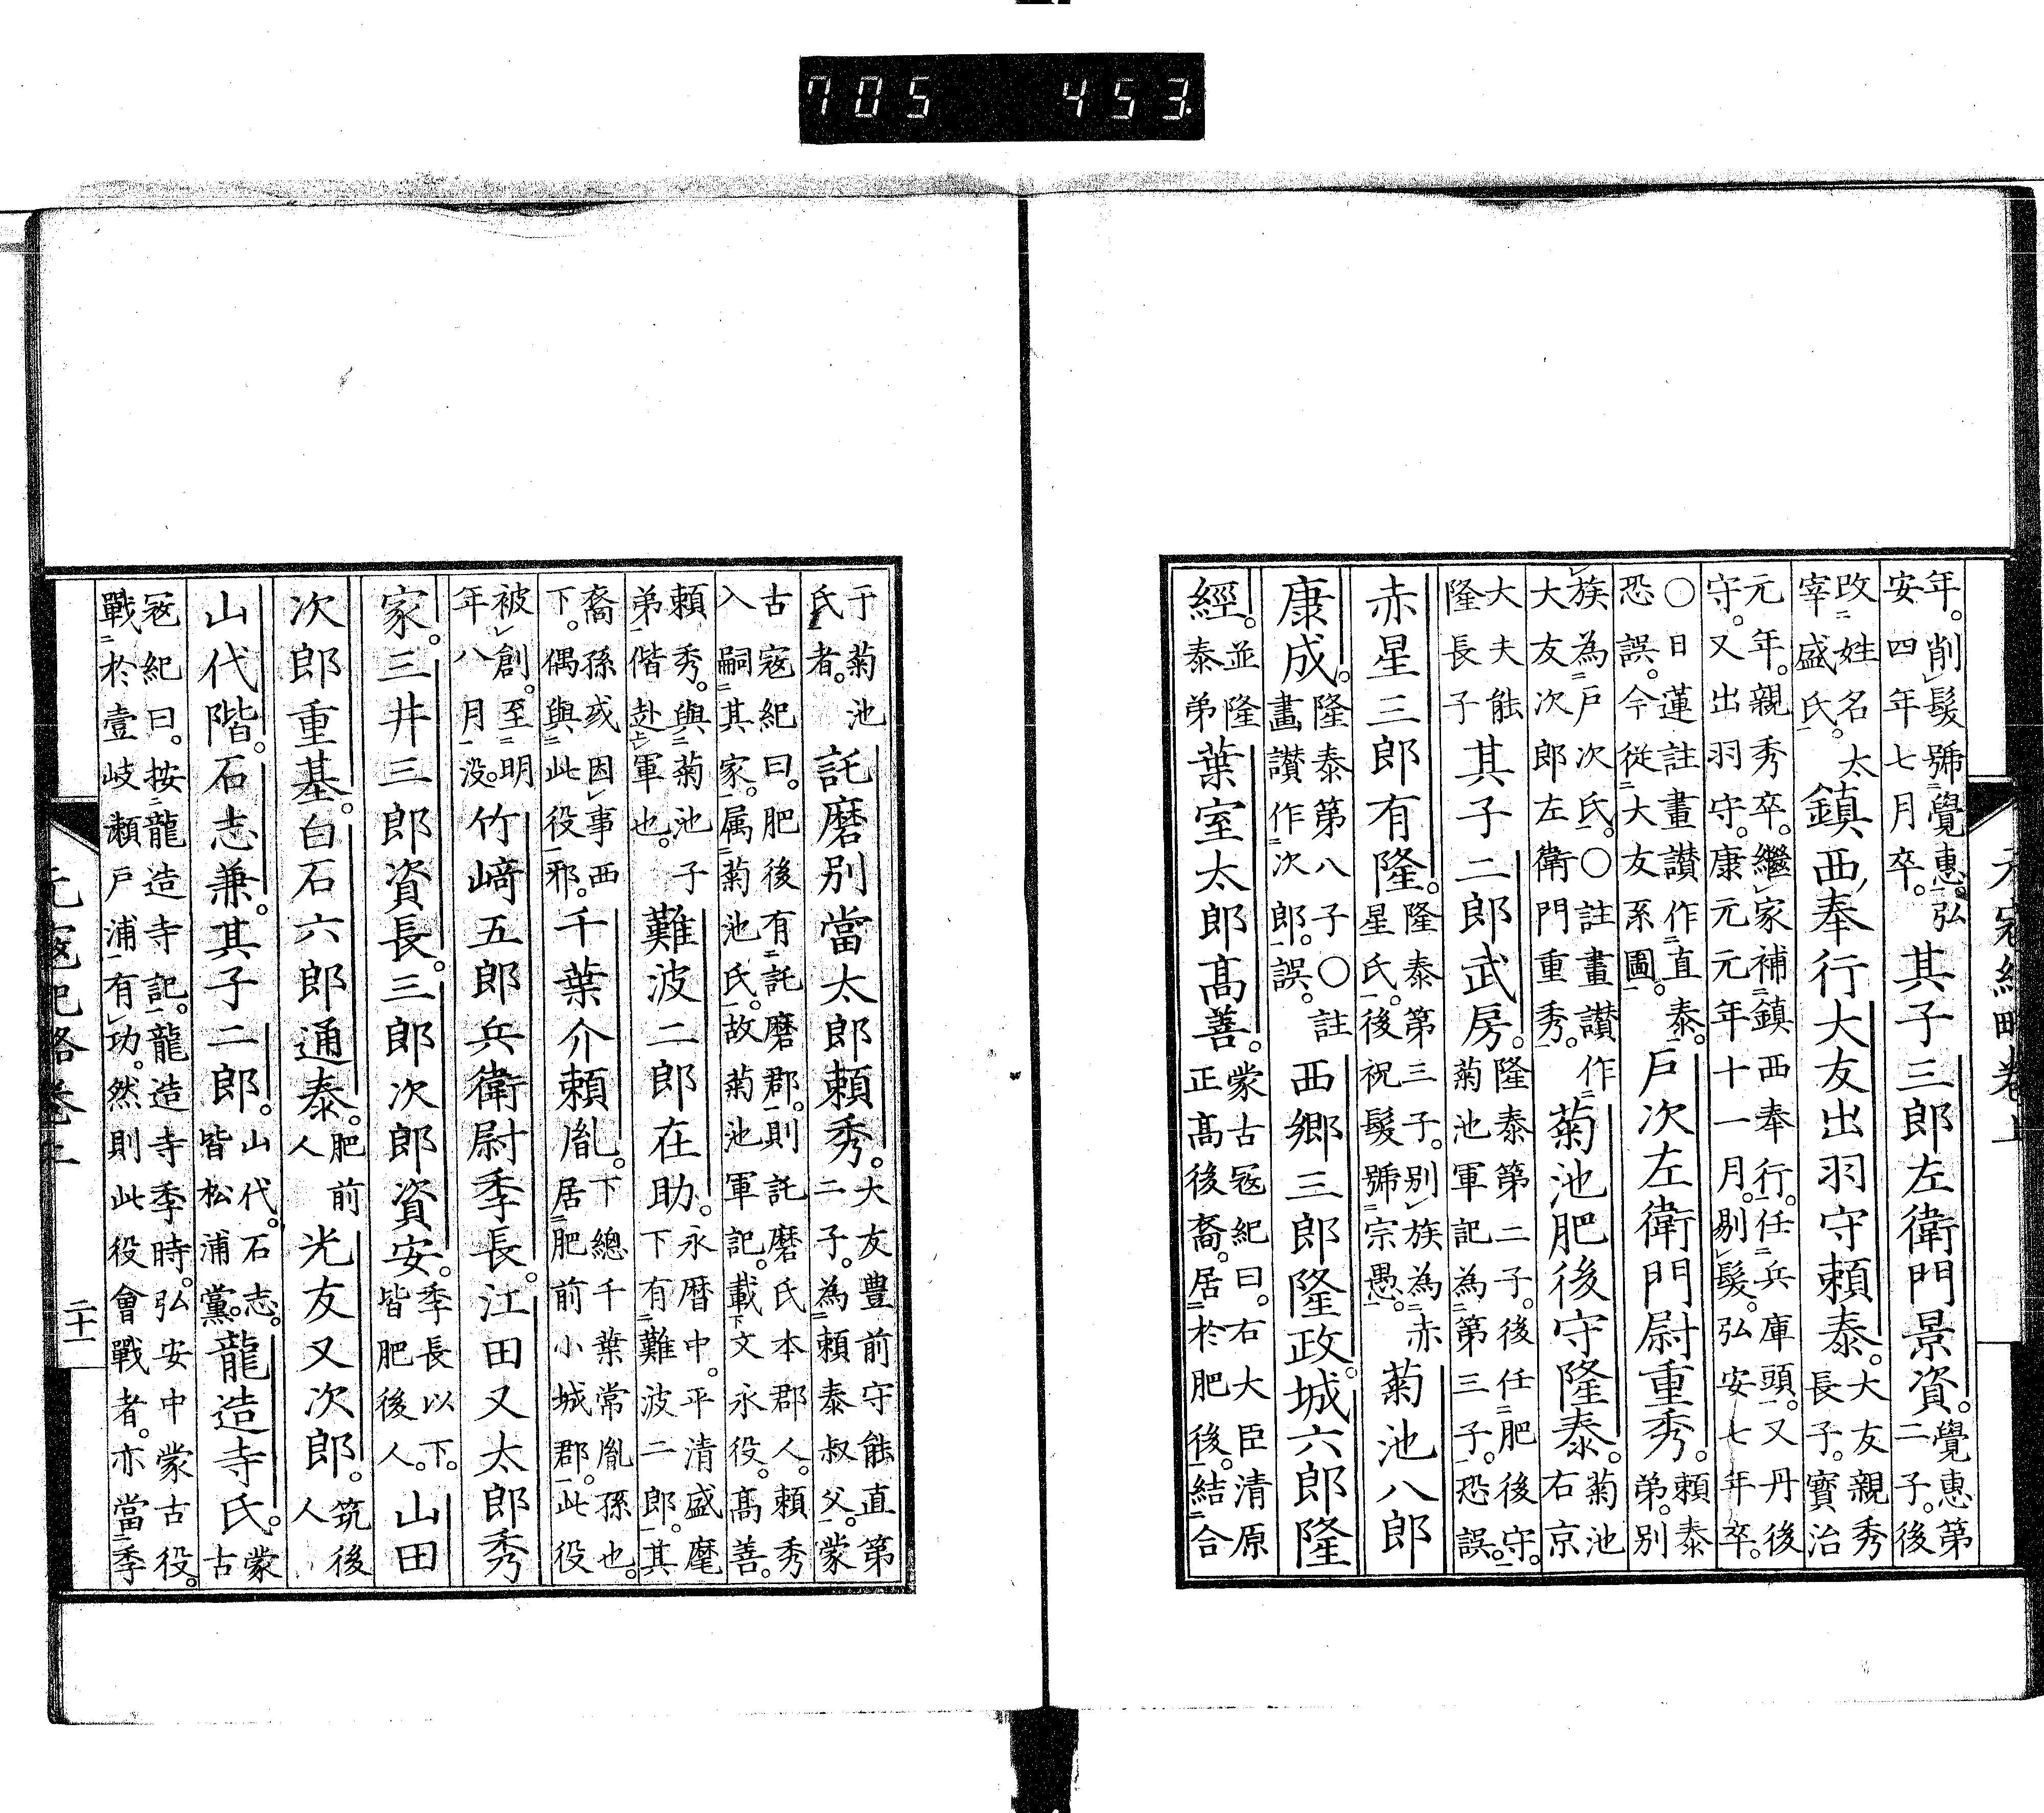 705 453
元寇紀略卷上
年。削髮號覺惠。弘安四年七月卒。其子三郎左衛門景資。覺惠第二子。後
改姓名。太宰盛氏。鎮西奉行大友出羽守頼泰。大友親秀長子。寶治
元年。親秀卒。繼家補鎮西奉行。任兵庫頭。又丹後守。又出羽守。康元元年十一月。剔髮。弘安七年卒。
○日蓮註畫讃作直泰。恐誤。今從大友系圖。戶次左衛門尉重秀。頼泰弟。別
族為戶次氏。○註畫讃作大友次郎左衛門重秀。菊池肥後守隆泰。菊池右京
大夫能隆長子其子二郎武房。隆泰第二子。後任肥後守。菊池軍記為第三子。恐誤。
赤星三郎有隆。隆泰第三子。別族為赤星氏。後祝髮號宗愚。菊池八郎
康成。隆泰第八子○註畫讃作次郎。誤。西郷三郎隆政。城六郎隆
經。並隆泰弟葉室太郎高善。蒙古寇紀曰。右大臣清原正高後裔。居於肥後。結合
于菊池氏者。託磨別當太郎頼秀。大友豊前守能直第二子。為頼泰叔父。蒙
古寇紀曰。肥後有託磨郡。則託磨氏本郡人。頼秀入嗣其家。属菊池氏。故菊池軍記。載文永役。高善。
頼秀。與菊池子弟偕赴軍也。難波二郎在助。永暦中。平清盛麾下有難波二郎。其
裔孫或因事西下。偶與此役邪。千葉介頼胤。下總千葉常胤孫也。居肥前小城郡。此役
被創。至明年八月没。竹﨑五郎兵衛尉季長。江田又太郎秀
家。三井三郎資長。三郎次郎資安。季長以下。皆肥後人。山田
次郎重基。白石六郎通泰。肥前人光友又次郎。筑後人
山代階。石志兼。其子二郎。山代。石志。皆松浦黨。龍造寺氏。蒙古
寇紀曰。按龍造寺記。龍造寺季時。弘安中蒙古役。戰於壹岐瀬戶浦有功。然則此役會戰者。亦當季
元寇紀略卷上 二十一